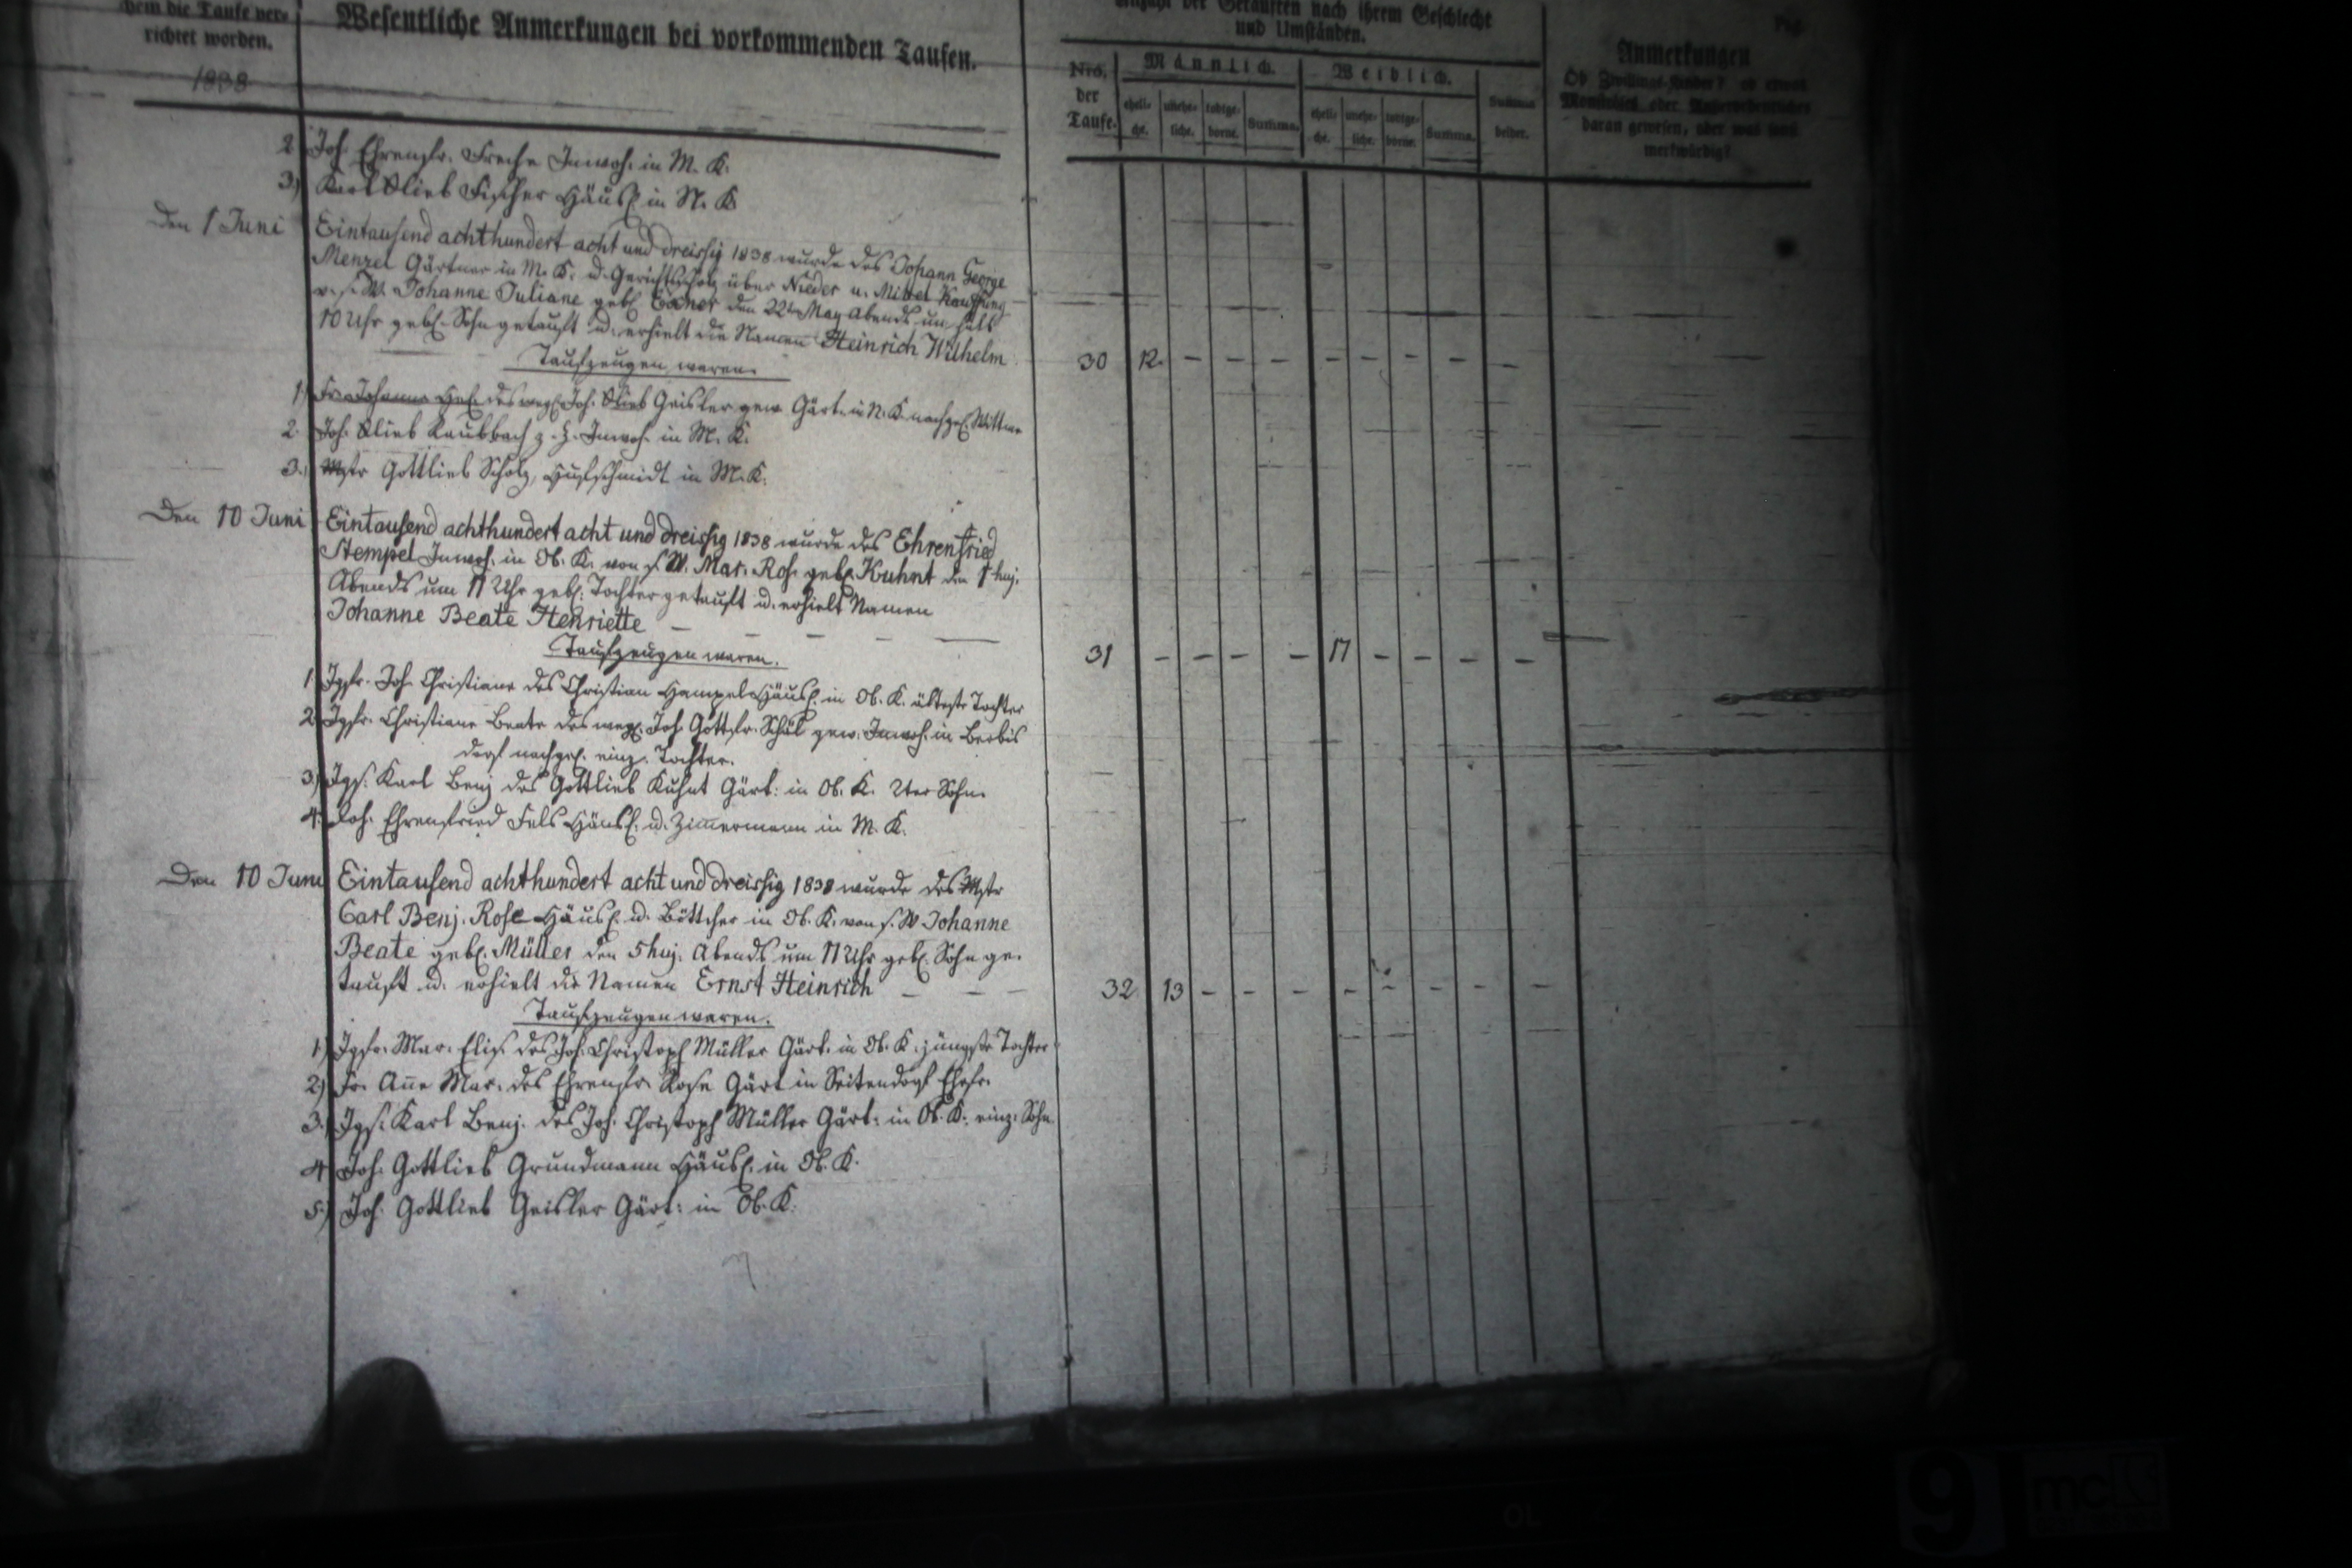 dem die Taufe ver-
richtet worden.
1838
Wesentliche Anmerkungen bei vorkommenden Taufen.
Anzahl der Getauften nach ihrem Geschlecht
und Umständen.
Nro. der Taufe.
Männlich.
eheli-che. unehe-liche. todtge-borne. Summa.
Weiblich.
eheli-che. unehe-liche. todtge-borne. Summa.
Summa beider.
Anmerkungen
Ob Zwillings-Kinder? ob etwas
Monströses oder Außerordentliches
daran gewesen, oder was sonst
merkwürdig?
2 Joh. Ehrenfr. Freche Inwoh. in M. K.
3) Karl Glieb Fischer Häusl. in N. K
Den 1 Juni
Eintausend achthundert acht und dreissig 1838 wurde des Johann George
Menzel Gärtner in M. K. u. Gerichtsscholz über Nieder u. Mittel Kauffung
v. s. W. Johanne Juliane geb. den 22 May Abends um halb
10 Uhr geb. Sohn getauft u. erhielt die Namen Heinrich Wilhelm
Taufzeugen waren.
30 12 - - - - - - - -
1. Fr. Johanne des weyl. Joh. Glieb Geisler gew. Gärt. in N. K. nachgel. Wittwe
2. Joh. Glieb Raubbach z. H. Inwoh. in M. K.
3. Mstr Gottlieb Scholz, Hufschmidt in M. K.
Den 10 Juni
Eintausend achthundert acht und dreissig 1838 wurde des Ehrenfried
Stempel Inwoh. in Ob. K. von s. W. Mar. Ros. geb. Kuhnt den 1 huj.
Abends um 11 Uhr geb. Tochter getauft u. erhielt Namen
Johanne Beate Henriette - - - - -
Taufzeugen waren.
31 - - - - 17 - - - -
1. Jgfr. Joh. Christiane des Christian Hampel Häusl. in Ob. K. älteste Tochter
2. Jgfr. Christiane Beate des weyl. Joh. Gottfr. Schäl gew. Inwoh. in Berbis
dorf nachgel. einz. Tochter.
3) Jgs. Karl Benj des Gottlieb Kuhnt Gärt: in Ob. K. 2ter Sohn.
4. Joh. Ehrenfried Fels Häusl. u. Zimmermann in M. K.
Den 10 Juni
Eintausend achthundert acht und dreissig 1838 wurde des Mstr
Carl Benj. Rose Häusl. u. Böttcher in Ob. K. von s. W Johanne
Beate geb. Müller den 5 huj. Abends um 11 Uhr geb. Sohn ge-
tauft u. erhielt die Namen Ernst Heinrich - - -
Taufzeugen waren.
32 13 - - - - - - - -
1) Jgfr. Mar. Elis. des Joh. Christoph Müller Gärt. in Ob. K. jüngste Tochter
2) Fr. Anne Mar. des Ehrenfr. Rose Gärt in Seitendorf Ehefr.
3.) Jgs. Karl Benj. des Joh. Christoph Müller Gärt: in Ob. K. einz. Sohn
4) Joh. Gottlieb Grundmann Häusl. in Ob. K.
5) Joh. Gottlieb Geisler Gärt: in Ob. K.
9